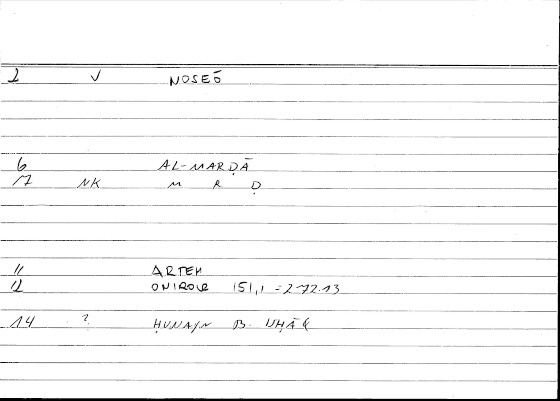 2 V NOSEŌ
6 AL-MARḌĀ
7 NK M R Ḍ
11 ARTEM
12 ONIROCR 151,1 = 272.13
14 ? ḤUNAYN B.